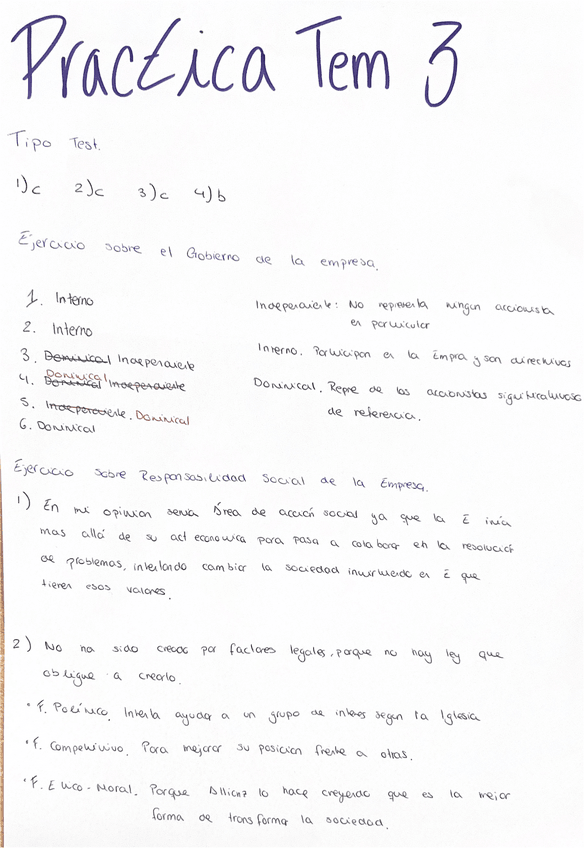 Practica Tem 3
Tipo Test.
1)c 2)c 3)c 4)b
Ejercicio sobre el Gobierno de la empresa.
1. Interno
2. Interno
3. Dominical Independiente
4. Dominical Dominical Independiente
5. Independiente. Dominical
6. Dominical
Independiente: No representa ningun accionista
en particular
Interno. Participan en la Empra y son directivos
Dominical. Repre de los accionistas significativos
de referencia.
Ejercicio sobre Responsabilidad Social de la Empresa.
1) En mi opinion seria Área de acción social ya que la E iría
mas allá de su act economica para pasa a colaborar en la resolución
de problemas, intentando cambiar la sociedad invirtiendo en E que
tienen esos valores.
2) No ha sido creado por factores legales, porque no hay ley que
obligue a crearlo.
• F. Político. Intenta ayudar a un grupo de interes segun la Iglesia
• F. Competitivo. Para mejorar su posicion frente a otras.
• F. Etico-Moral. Porque Allianz lo hace creyendo que es la mejor
forma de transforma la sociedad.